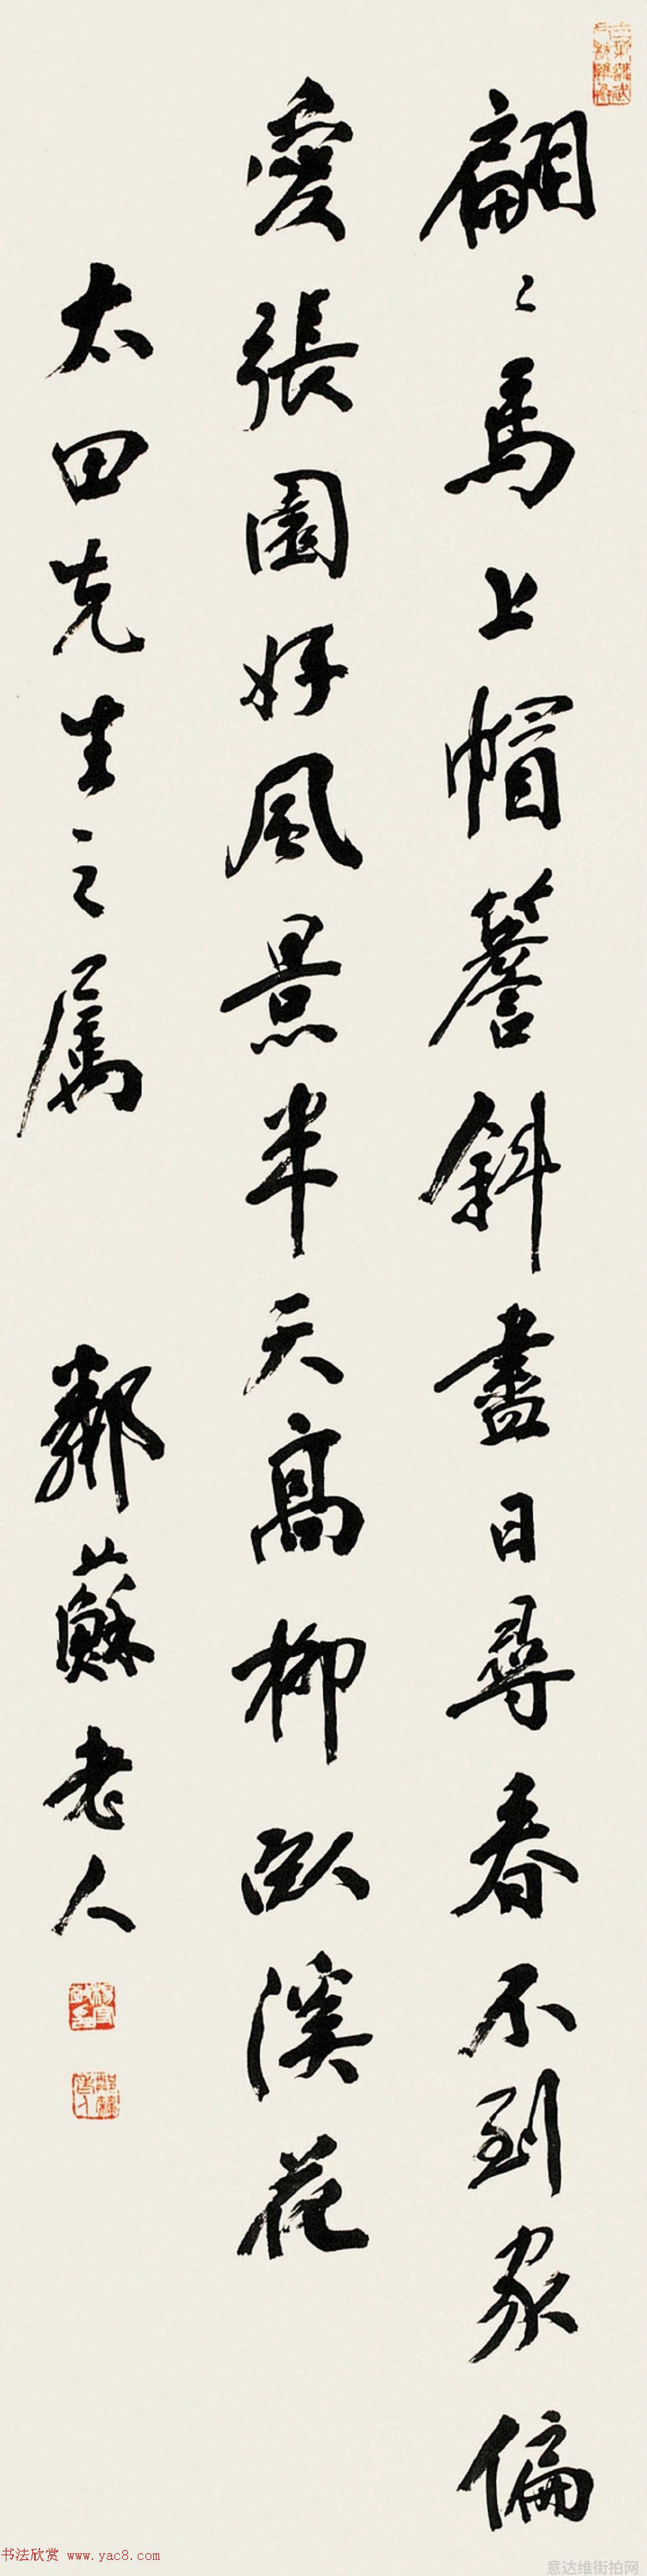 翩〻馬上帽簷斜盡日尋春不到家偏
愛張園好風景半天高柳臥溪花
太田先生之属
鄰蘇老人
书法欣赏 www.yac8.com
意达维街拍网